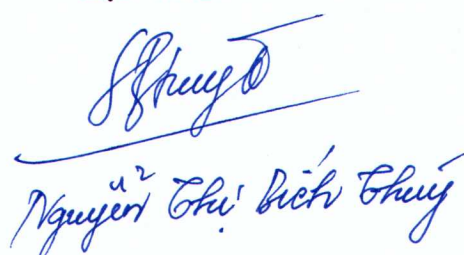 Nguyễn Thị Bích Thuỷ